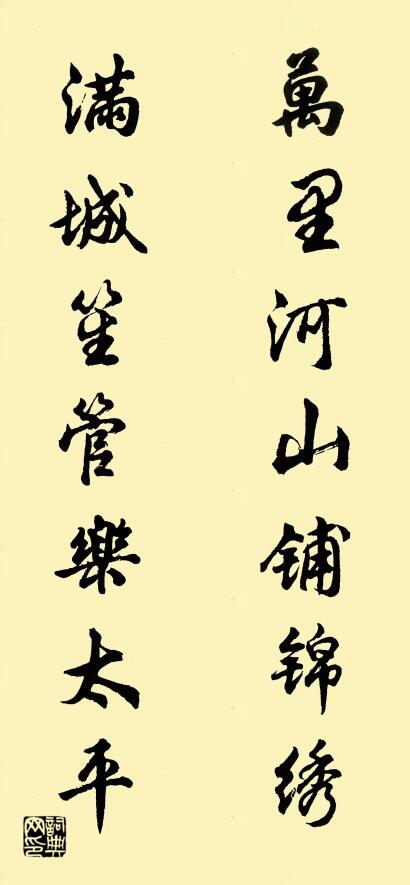 萬里河山铺锦绣
滿城笙管樂太平
詞典网印